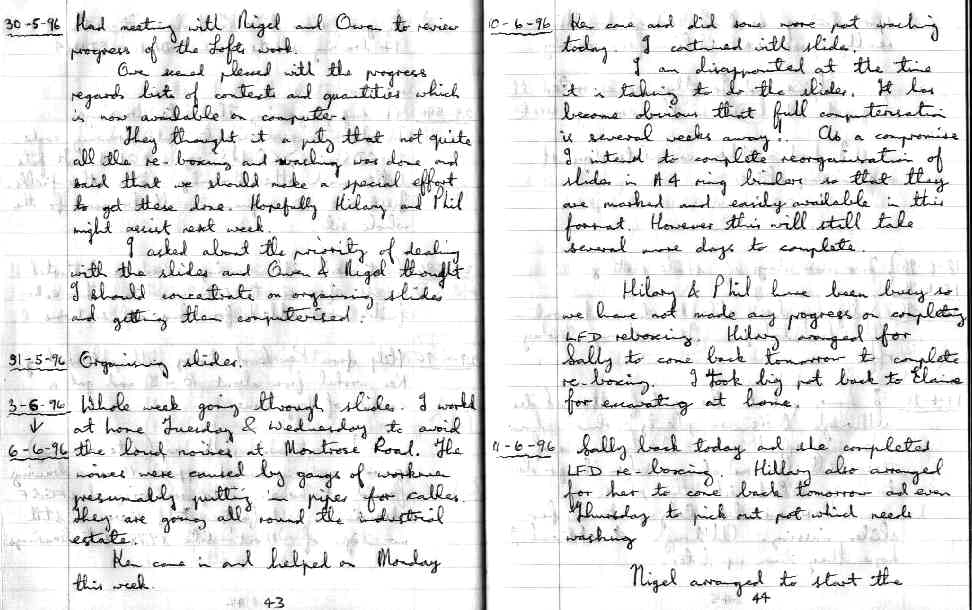 30-5-96 Had meeting with Nigel and Owen to review
progress of the Lofts work.
Owe seemed pleased with the progress
regards lists of contexts and quantities which
is now available on computer.
They thought it a pity that not quite
all the re-boxing and marking was done, and
said that we should make a special effort
to get these done. Hopefully Hilary and Phil
might assist next week.
I asked about the priority of dealing
with the slides and Owen & Nigel thought
I should concentrate on organising slides
and getting them computerised.
31-5-96 Organising slides.
3-6-96 Whole week going through slides. I worked
at home Tuesday & Wednesday to avoid
6-6-96 the loud noises at Montrose Road. The
noises were caused by gangs of workmen
presumably putting in pipes for cables.
They are going all round the industrial
estate.
Ken came in and helped on Monday
this week.
43
10-6-96 Ken came and did some more pot washing
today. I continued with slides.
I am disappointed at the time
it is taking to do the slides. It has
become obvious that full computerisation
is several weeks away! As a compromise
I intend to complete reorganisation of
slides in A4 ring binders so that they
are marked and easily available in this
format. However this will still take
several more days to complete.
Hilary & Phil have been busy so
we have not made any progress on completing
LFD reboxing. Hilary arranged for
Sally to come back tomorrow to complete
re-boxing. I took big pot back to Elaine
for excavating at home.
11-6-96 Sally back today and she completed
LFD re-boxing. Hillary also arranged
for her to come back tomorrow and even
Thursday to pick out pot which needs
washing
Nigel arranged to start the
44